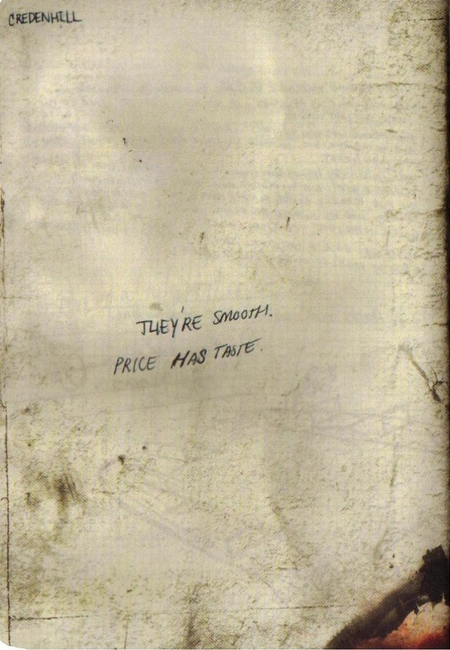 CREDENHILL
THEY'RE SMOOTH.
PRICE HAS TASTE.